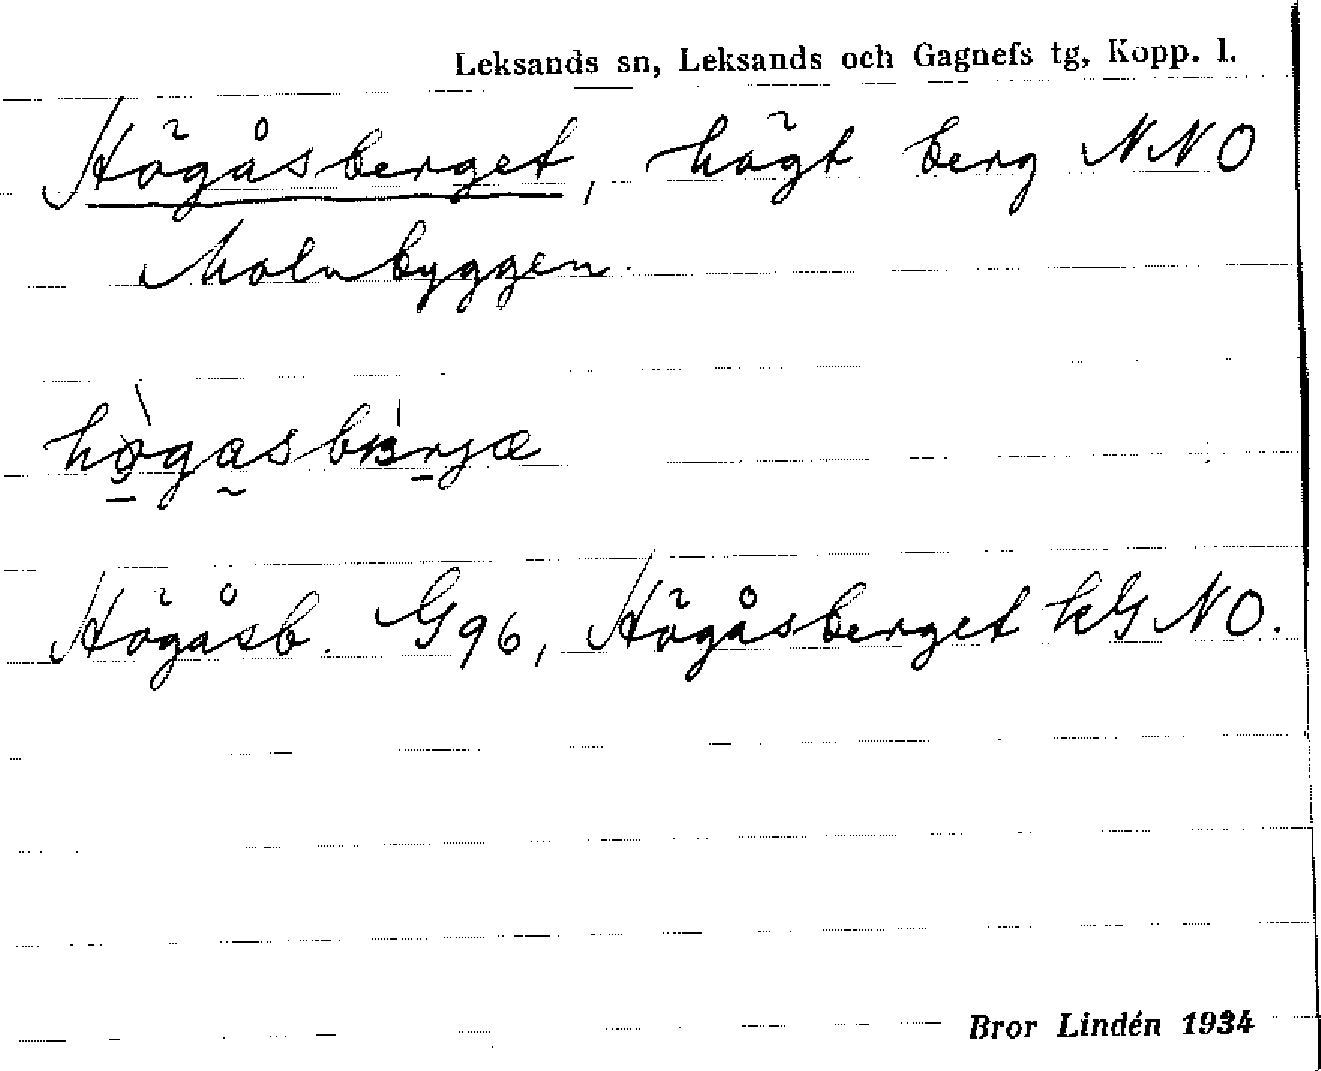 Leksands sn, Leksands och Gagnefs tg, Kopp. l.
Högåsberget, högt berg NNO
Molnbyggen.
Högåsb. G96, Högåsberget kG NO.
Bror Lindén 1934